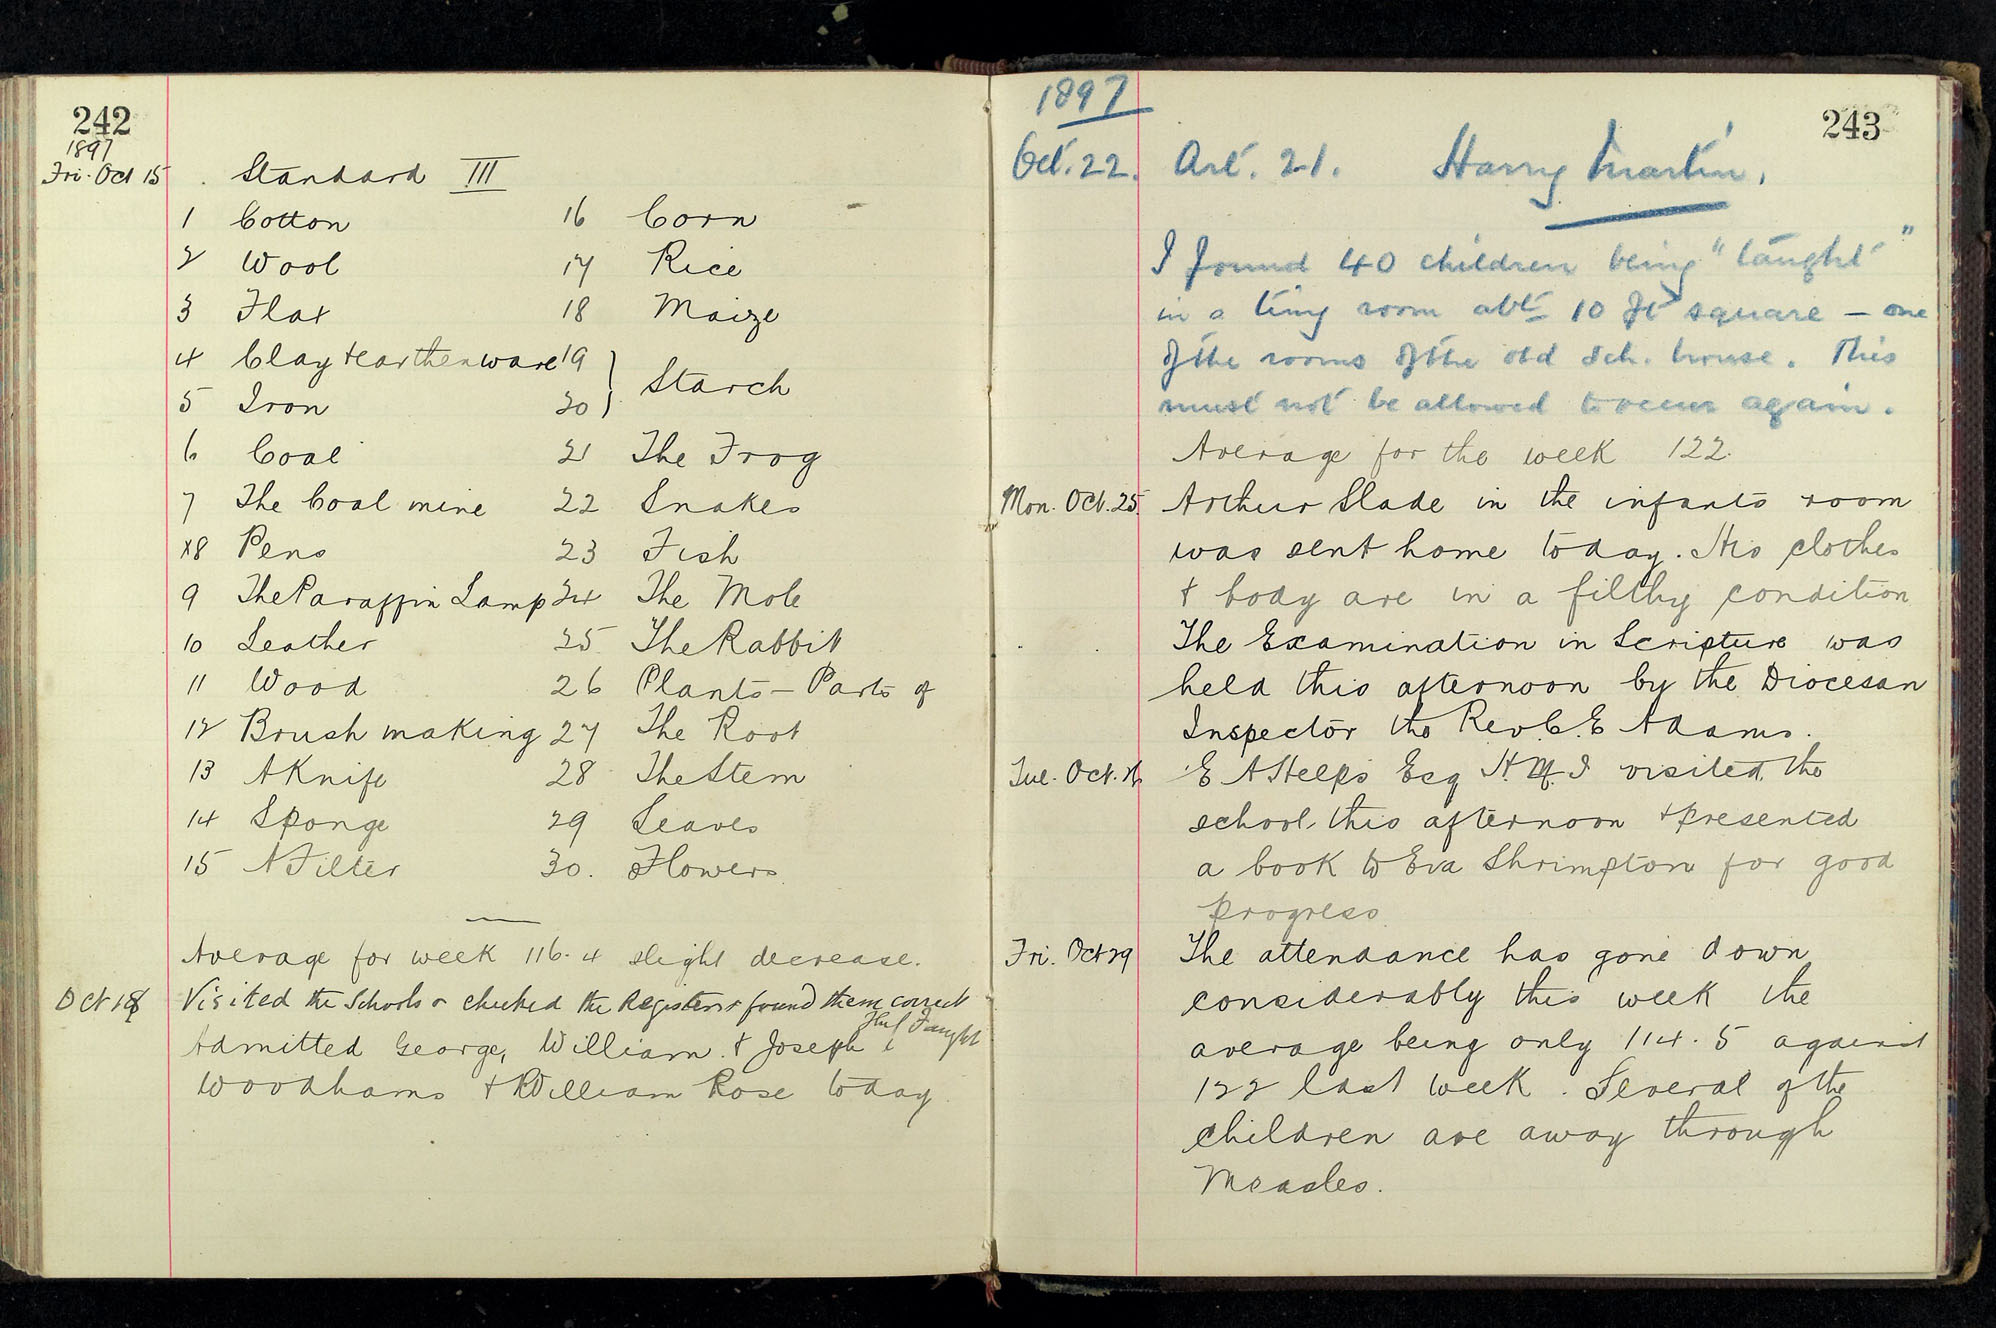 242
1897
Fri. Oct 15 . Standard III
1 Cotton
2 Wool
3 Flax
4 Clay & earthenware
5 Iron
6 Coal
7 The Coal mine
x8 Pens
9 The Paraffin Lamp
10 Leather
11 Wood
12 Brush making
13 A Knife
14 Sponge
15 A Filter
16 Corn
17 Rice
18 Maize
19
20 } Starch
21 The Frog
22 Snakes
23 Fish
24 The Mole
25 The Rabbit
26 Plants - Parts of
27 The Root
28 The Stem
29 Leaves
30. Flowers
Average for week 116.4 slight decrease.
Oct 18 Visited the Schools & checked the Registers & found them correct
Admitted George, William & Joseph
Woodhams & William Rose today
1897
243
Oct. 22. Art. 21. Harry Martin.
I found 40 children being "taught"
in a tiny room abt 10 ft square — one
of the rooms of the old Sch. house. This
must not be allowed to occur again.
Average for the week 122.
Mon. Oct. 25. Arthur Slade in the infants room
was sent home today. His clothes
& body are in a filthy condition
The Examination in Scripture was
held this afternoon by the Diocesan
Inspector the Rev C. E Adams.
Tue. Oct. 26 E A Helps Esq H.M.I visited the
school this afternoon & presented
a book to Eva Shrimpton for good
progress
Fri. Oct 29 The attendance has gone down
considerably this week the
average being only 114.5 against
122 last week. Several of the
children are away through
Measles.